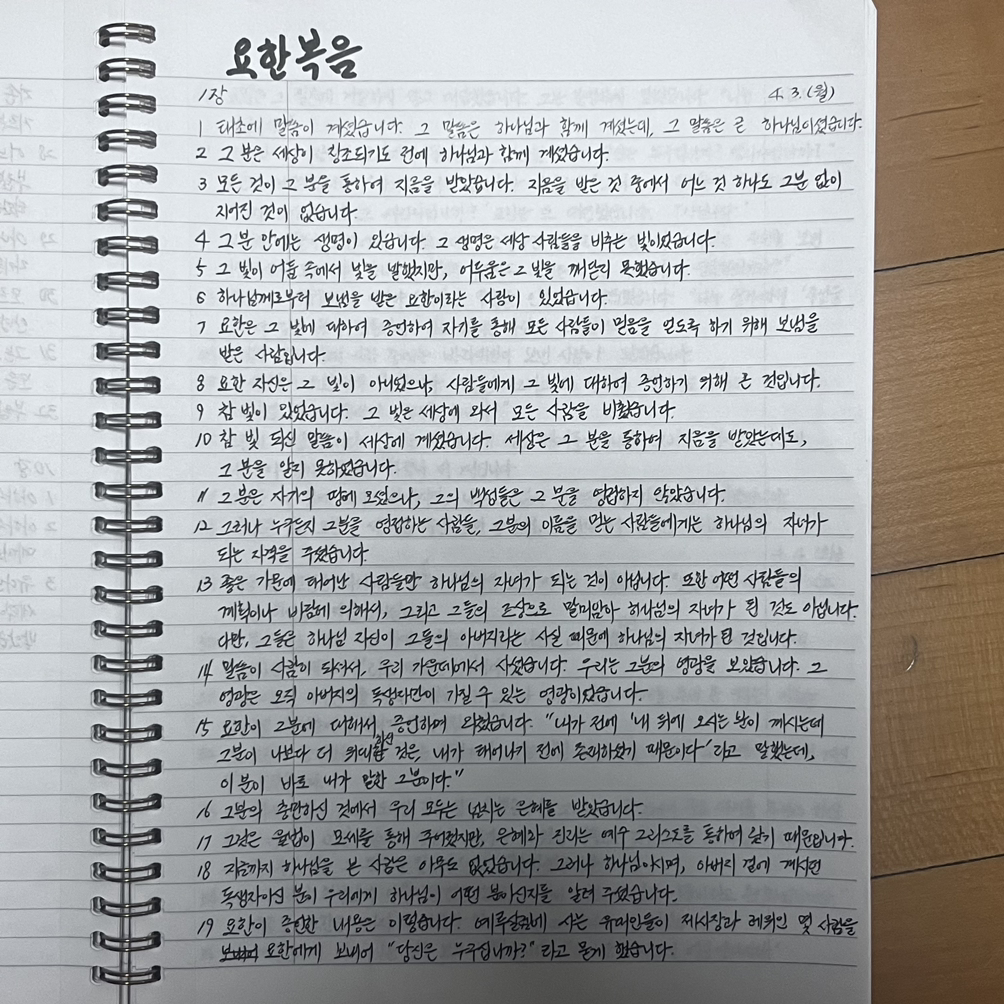 요한복음
1장 4.3.(월)
1 태초에 말씀이 계셨습니다. 그 말씀은 하나님과 함께 계셨는데, 그 말씀은 곧 하나님이셨습니다.
2 그 분은 세상이 창조되기도 전에 하나님과 함께 계셨습니다.
3 모든 것이 그 분을 통하여 지음을 받았습니다. 지음을 받은 것 중에서 어느 것 하나도 그분 없이
지어진 것이 없습니다.
4 그분 안에는 생명이 있습니다. 그 생명은 세상 사람들을 비추는 빛이었습니다.
5 그 빛이 어둠 속에서 빛을 발했지만, 어두움은 그 빛을 깨닫지 못했습니다.
6 하나님께로부터 보냄을 받은 요한이라는 사람이 있었습니다.
7 요한은 그 빛에 대하여 증언하여 자기를 통해 모든 사람들이 믿음을 얻도록 하기 위해 보냄을
받은 사람입니다.
8 요한 자신은 그 빛이 아니었으나, 사람들에게 그 빛에 대하여 증언하기 위해 온 것입니다.
9 참 빛이 있었습니다. 그 빛은 세상에 와서 모든 사람을 비췄습니다.
10 참 빛 되신 말씀이 세상에 계셨습니다. 세상은 그 분을 통하여 지음을 받았는데도,
그 분을 알지 못하였습니다.
11 그분은 자기의 땅에 오셨으나, 그의 백성들은 그 분을 영접하지 않았습니다.
12 그러나 누구든지 그분을 영접하는 사람들, 그분의 이름을 믿는 사람들에게는 하나님의 자녀가
되는 자격을 주셨습니다.
13 좋은 가문에 태어난 사람들만 하나님의 자녀가 되는 것이 아닙니다. 또한 어떤 사람들의
계획이나 바람에 의해서, 그리고 그들의 조상으로 말미암아 하나님의 자녀가 된 것도 아닙니다.
다만, 그들은 하나님 자신이 그들의 아버지라는 사실 때문에 하나님의 자녀가 된 것입니다.
14 말씀이 사람이 되셔서, 우리 가운데에서 사셨습니다. 우리는 그분의 영광을 보았습니다. 그
영광은 오직 아버지의 독생자만이 가질 수 있는 영광이었습니다.
15 요한이 그분에 대해서 증언하며 외쳤습니다. "내가 전에 '내 뒤에 오시는 분이 계시는데
그분이 나보다 더 위대한 것은, 내가 태어나기 전에 존재하셨기 때문이다'라고 말했는데,
이 분이 바로 내가 말한 그분이다."
16 그분의 충만하신 것에서 우리 모두는 넘치는 은혜를 받았습니다.
17 그것은 율법이 모세를 통해 주어졌지만, 은혜와 진리는 예수 그리스도를 통하여 왔기 때문입니다.
18 지금까지 하나님을 본 사람은 아무도 없었습니다. 그러나 하나님이시며, 아버지 곁에 계시던
독생자이신 분이 우리에게 하나님이 어떤 분이신지를 알려 주셨습니다.
19 요한이 증언한 내용은 이렇습니다. 예루살렘에 사는 유대인들이 제사장과 레위인 몇 사람을
요한에게 보내어 "당신은 누구십니까?" 라고 묻게 했습니다.